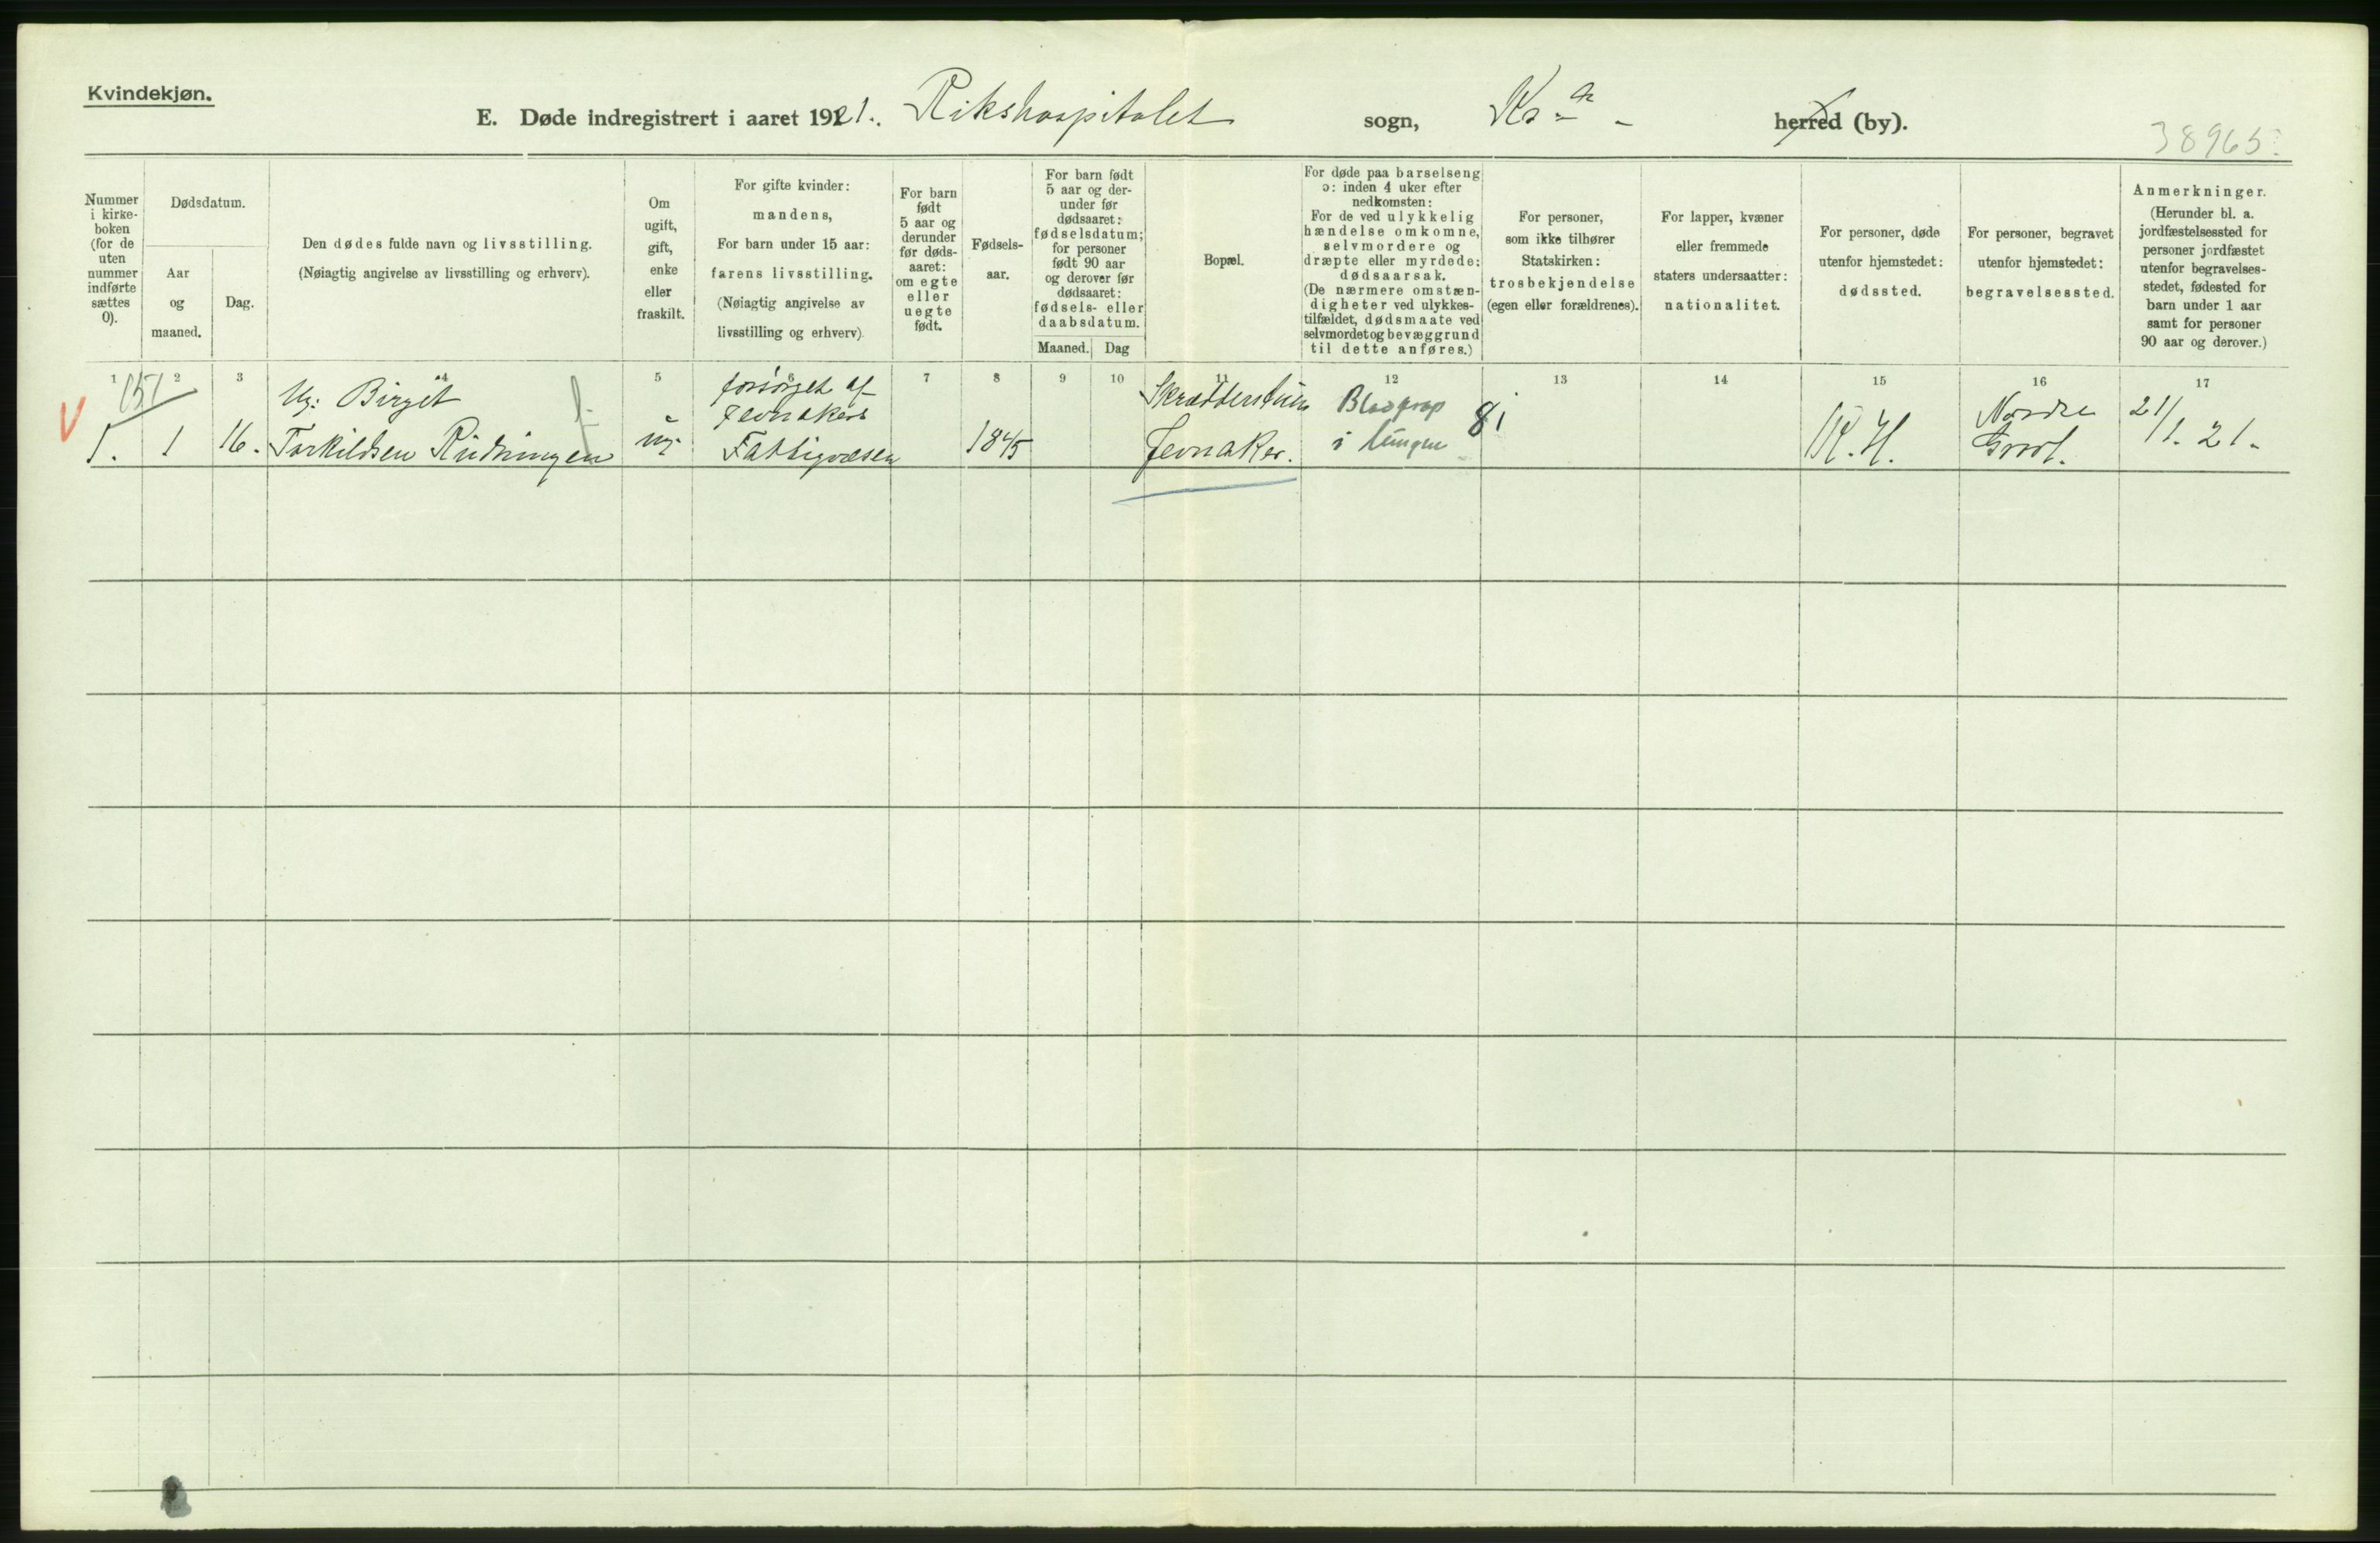 Kvindekjøn.
E. Døde indregistrert i aaret 1921. Rikshospitalet sogn, Kr.a herred (by).
38965.
Nummer
i kirke-
boken
(for de
uten
nummer
indførte
sættes
0).
Dødsdatum.
Aar
og
maaned.
Dag.
Den dødes fulde navn og livsstilling.
(Nøiagtig angivelse av livsstilling og erhverv).
Om
ugift,
gift,
enke
eller
fraskilt.
For gifte kvinder:
mandens,
For barn under 15 aar:
farens livsstilling.
(Nøiagtig angivelse av
livsstilling og erhverv).
For barn
født
5 aar og
derunder
før døds-
aaret:
om egte
eller
uegte
født.
Fødsels-
aar.
For barn født
5 aar og der-
under før
dødsaaret:
fødselsdatum;
for personer
født 90 aar
og derover før
dødsaaret:
fødsels- eller
daabsdatum.
Maaned.
Dag
Bopæl.
For døde paa barselseng
ɔ: inden 4 uker efter
nedkomsten:
For de ved ulykkelig
hændelse omkomne,
selvmordere og
dræpte eller myrdede:
dødsaarsak.
(De nærmere omstæn-
digheter ved ulykkes-
tilfældet, dødsmaate ved
selvmordet og bevæggrund
til dette anføres.)
For personer,
som ikke tilhører
Statskirken:
trosbekjendelse
(egen eller forældrenes).
For lapper, kvæner
eller fremmede
staters undersaatter:
nationalitet.
For personer, døde
utenfor hjemstedet:
dødssted.
For personer, begravet
utenfor hjemstedet:
begravelsessted.
Anmerkninger.
(Herunder bl. a.
jordfæstelsessted for
personer jordfæstet
utenfor begravelses-
stedet, fødested for
barn under 1 aar
samt for personer
90 aar og derover.)
1 2 3 4 5 6 7 8 9 10 11 12 13 14 15 16 17
151
V
1.
1
16.
Ug: Birgit
Torkildsen Rudningen
f.
ug.
forsørget af
Jevnakers
Fattigvæsen
1845
Jevnaker.
Blodprop
i lungen
81
R.H.
Nordre
Gravl.
21/1. 21.